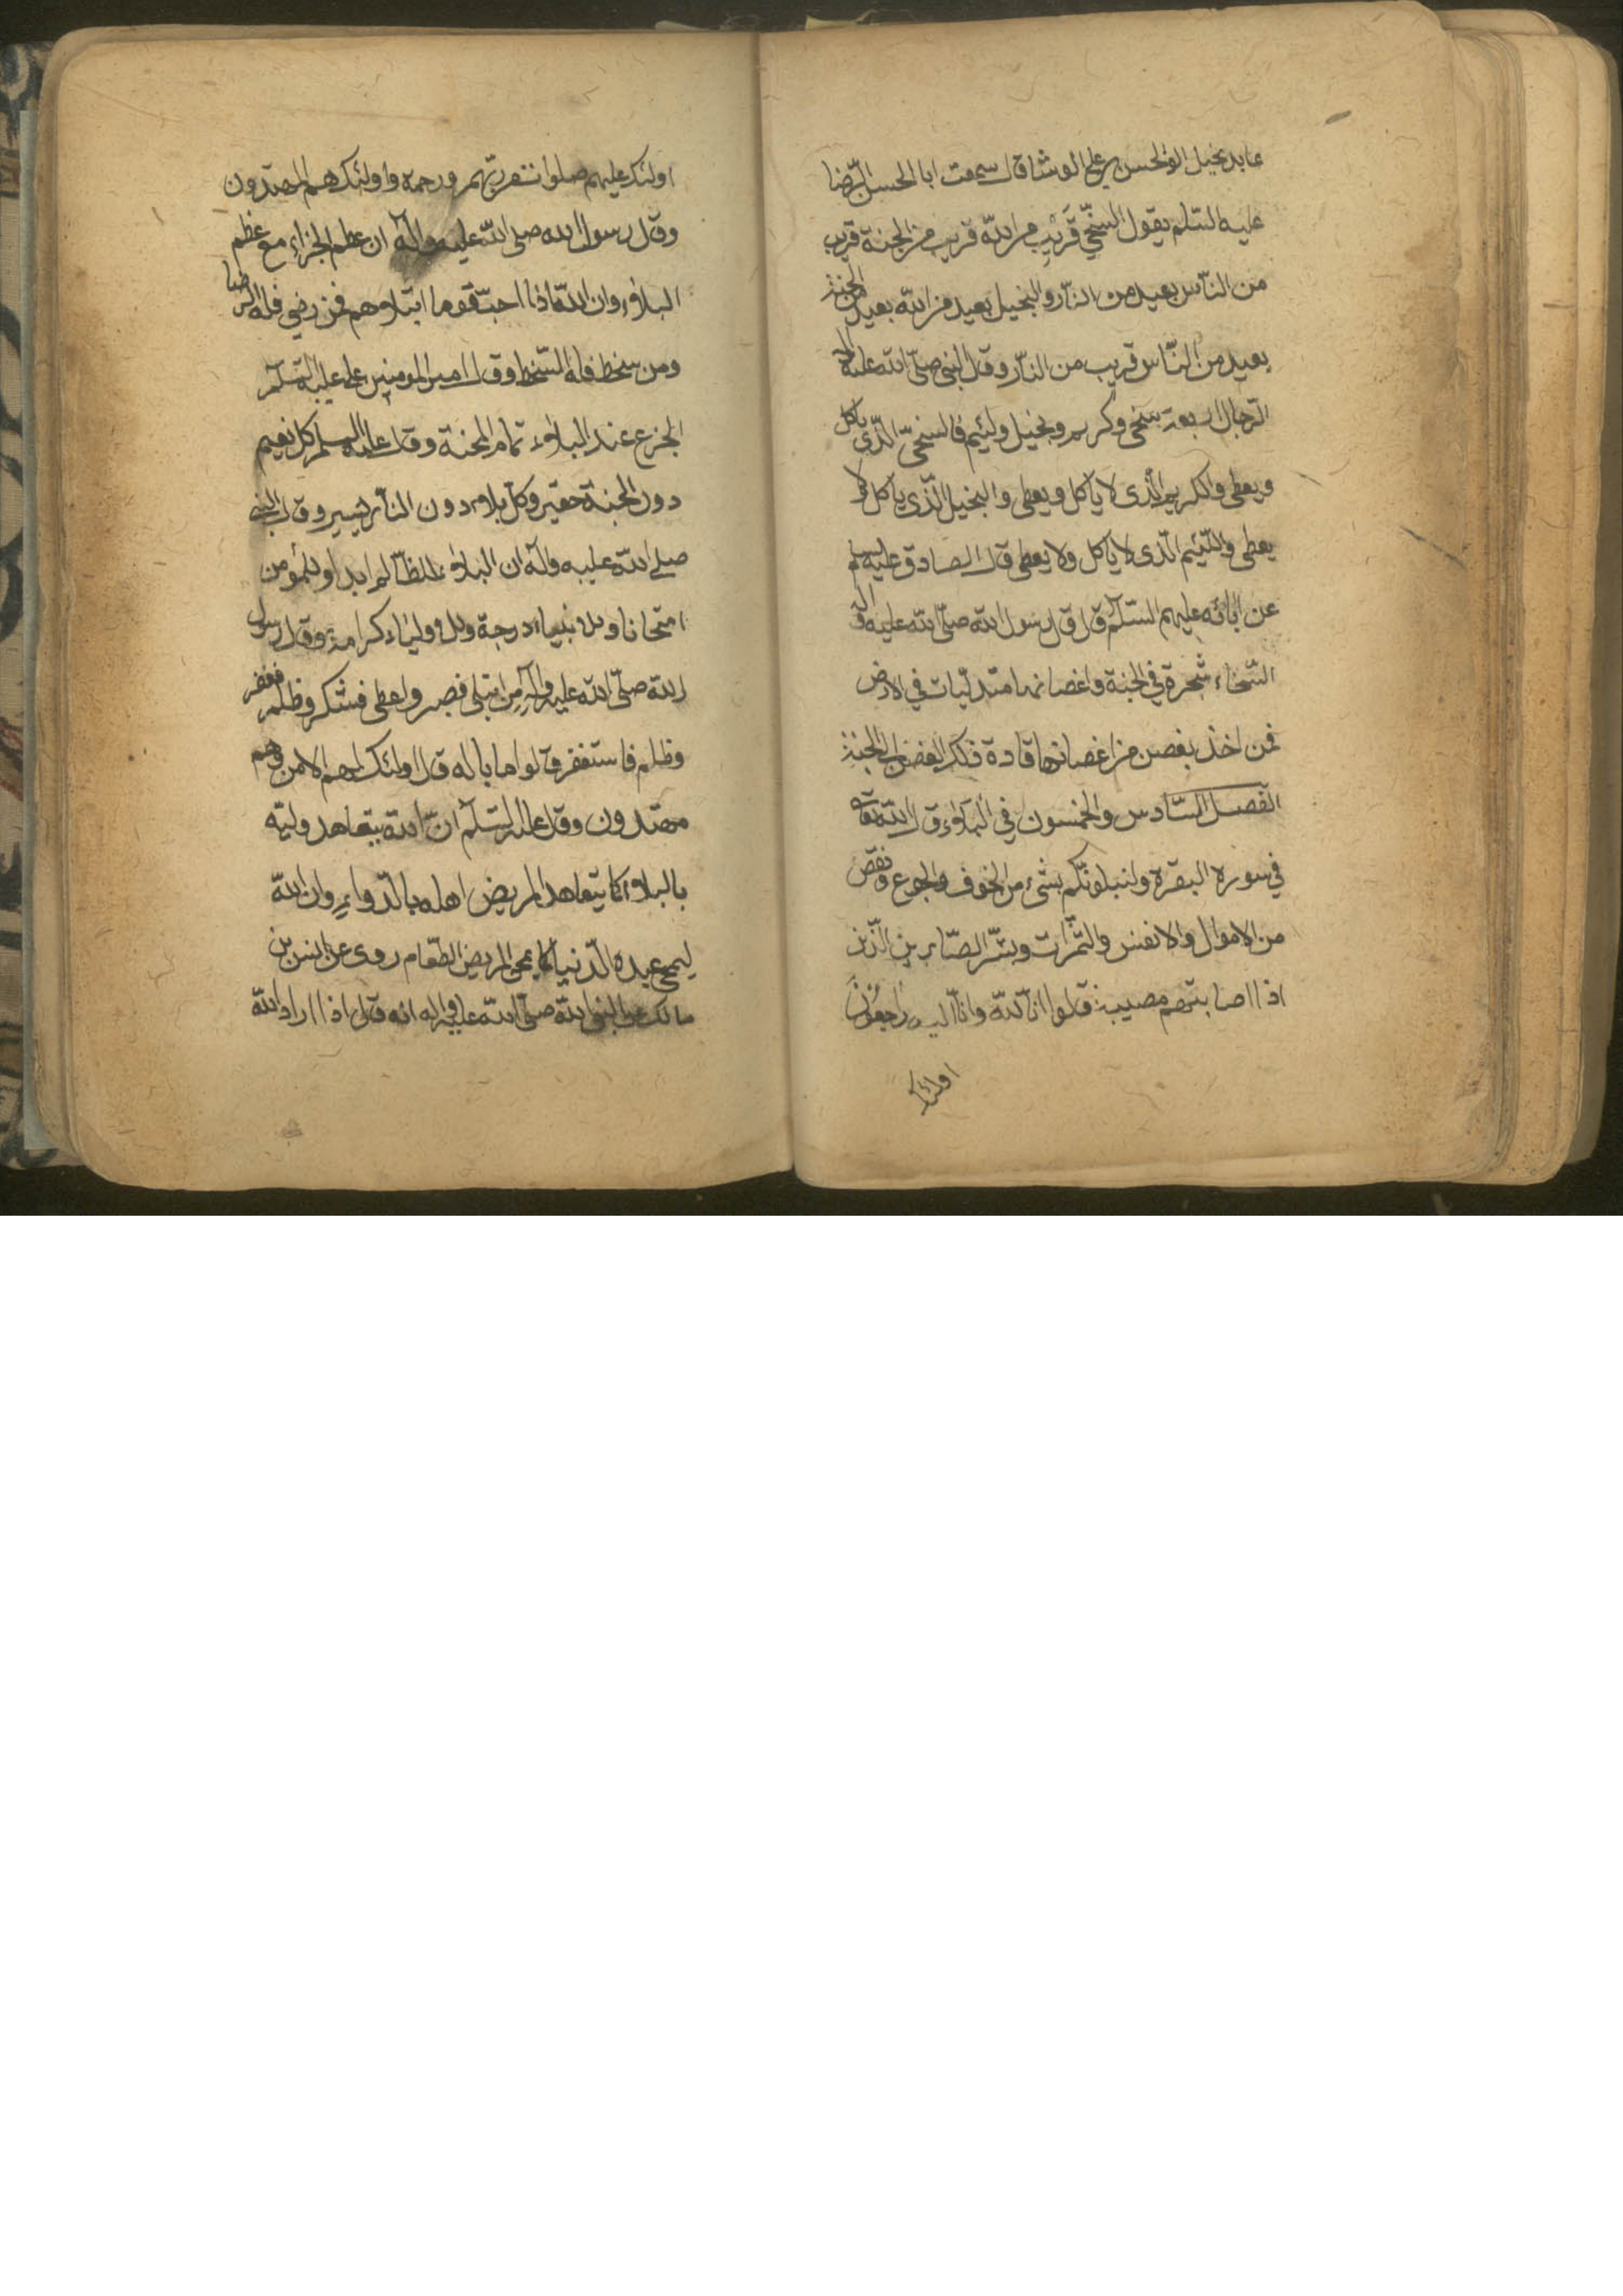 عابد بخيل ابو الحسن بن علي الوشا قال سمعت ابا الحسن الرّضا
عليه السّلم يقول السّخيّ قَريب من اللّه قريب من الجنة قريب
من النّاس بعيد من النّار والبخيل بعيد من اللّه بعيد من الجنة
بعيد من النّاس قريب من النّار وقال النبي صلّى اللّه عليه وآله
الرّجال اربعة سخى وكريم وبخيل ولئيم فالسخىّ الّذى ياكل
ويعطى والكريم الّذى لا ياكل ويعطى والبخيل الّذى ياكل ولا
يعطى واللّئيم الّذى لا ياكل ولا يعطى قال الصادق عليه سلم
عن ابائه عليهم السّلم قال قال رسول اللّه صلّى اللّه عليه وآله
السّخاء شجرة في الجنة واغصانها متدلّيات في الارض
فمن اخذ بغصن من اغصانها قاده ذلك الغصن الى الجنة
الفصل السّادس والخمسون في البلاء قال اللّه تعالى
في سورة البقرة ولنبلونّكم بشئ من الخوف والجوع ونقص
من الاموال والانفس والثّمرات وبشّر الصّابرين الّذين
اذا اصابتهم مصيبة قالوا انّا للّه وانّا اليه راجعون
اولئك
اولئك عليهم صلوات من ربّهم ورحمة واولئك هم المهتدون
وقال رسول اللّه صلى اللّه عليه وآله ان عظم الجزاء مع عظم
البلاء وان اللّه اذا احبّ قوما ابتلاهم فمن رضي فله الرضا
ومن سخط فله السّخط وقال امير المومنين على عليه السّلم
الجزع عند البلاء تمام المحنة وقال عليه السلم كل نعيم
دون الجنة حقير وكل بلاء دون النّار يسير وقال النبي
صلى اللّه عليه وآله ان البلاء للظّالم ادب وللمؤمن
امتحانا وللانبياء درجة وللاولياء كرامة وقال رسول
اللّه صلّى اللّه عليه وآله من ابتلى فصبر واعطى فشكر وظلم فغفر
وظلم فاستغفر قالوا ما باله قال اولئك لهم الامن وهم
مهتدون وقال عليه السّلم انّ اللّه يتعاهد وليّه
بالبلاء كما يتعاهد المريض اهله بالدّواء وان اللّه
ليحمى عبده الدّنيا كما يحمى المريض الطّعام روى عن انس بن
مالك عن النبي اللّه صلّى اللّه عليه وآله انه قال اذا اراد اللّه